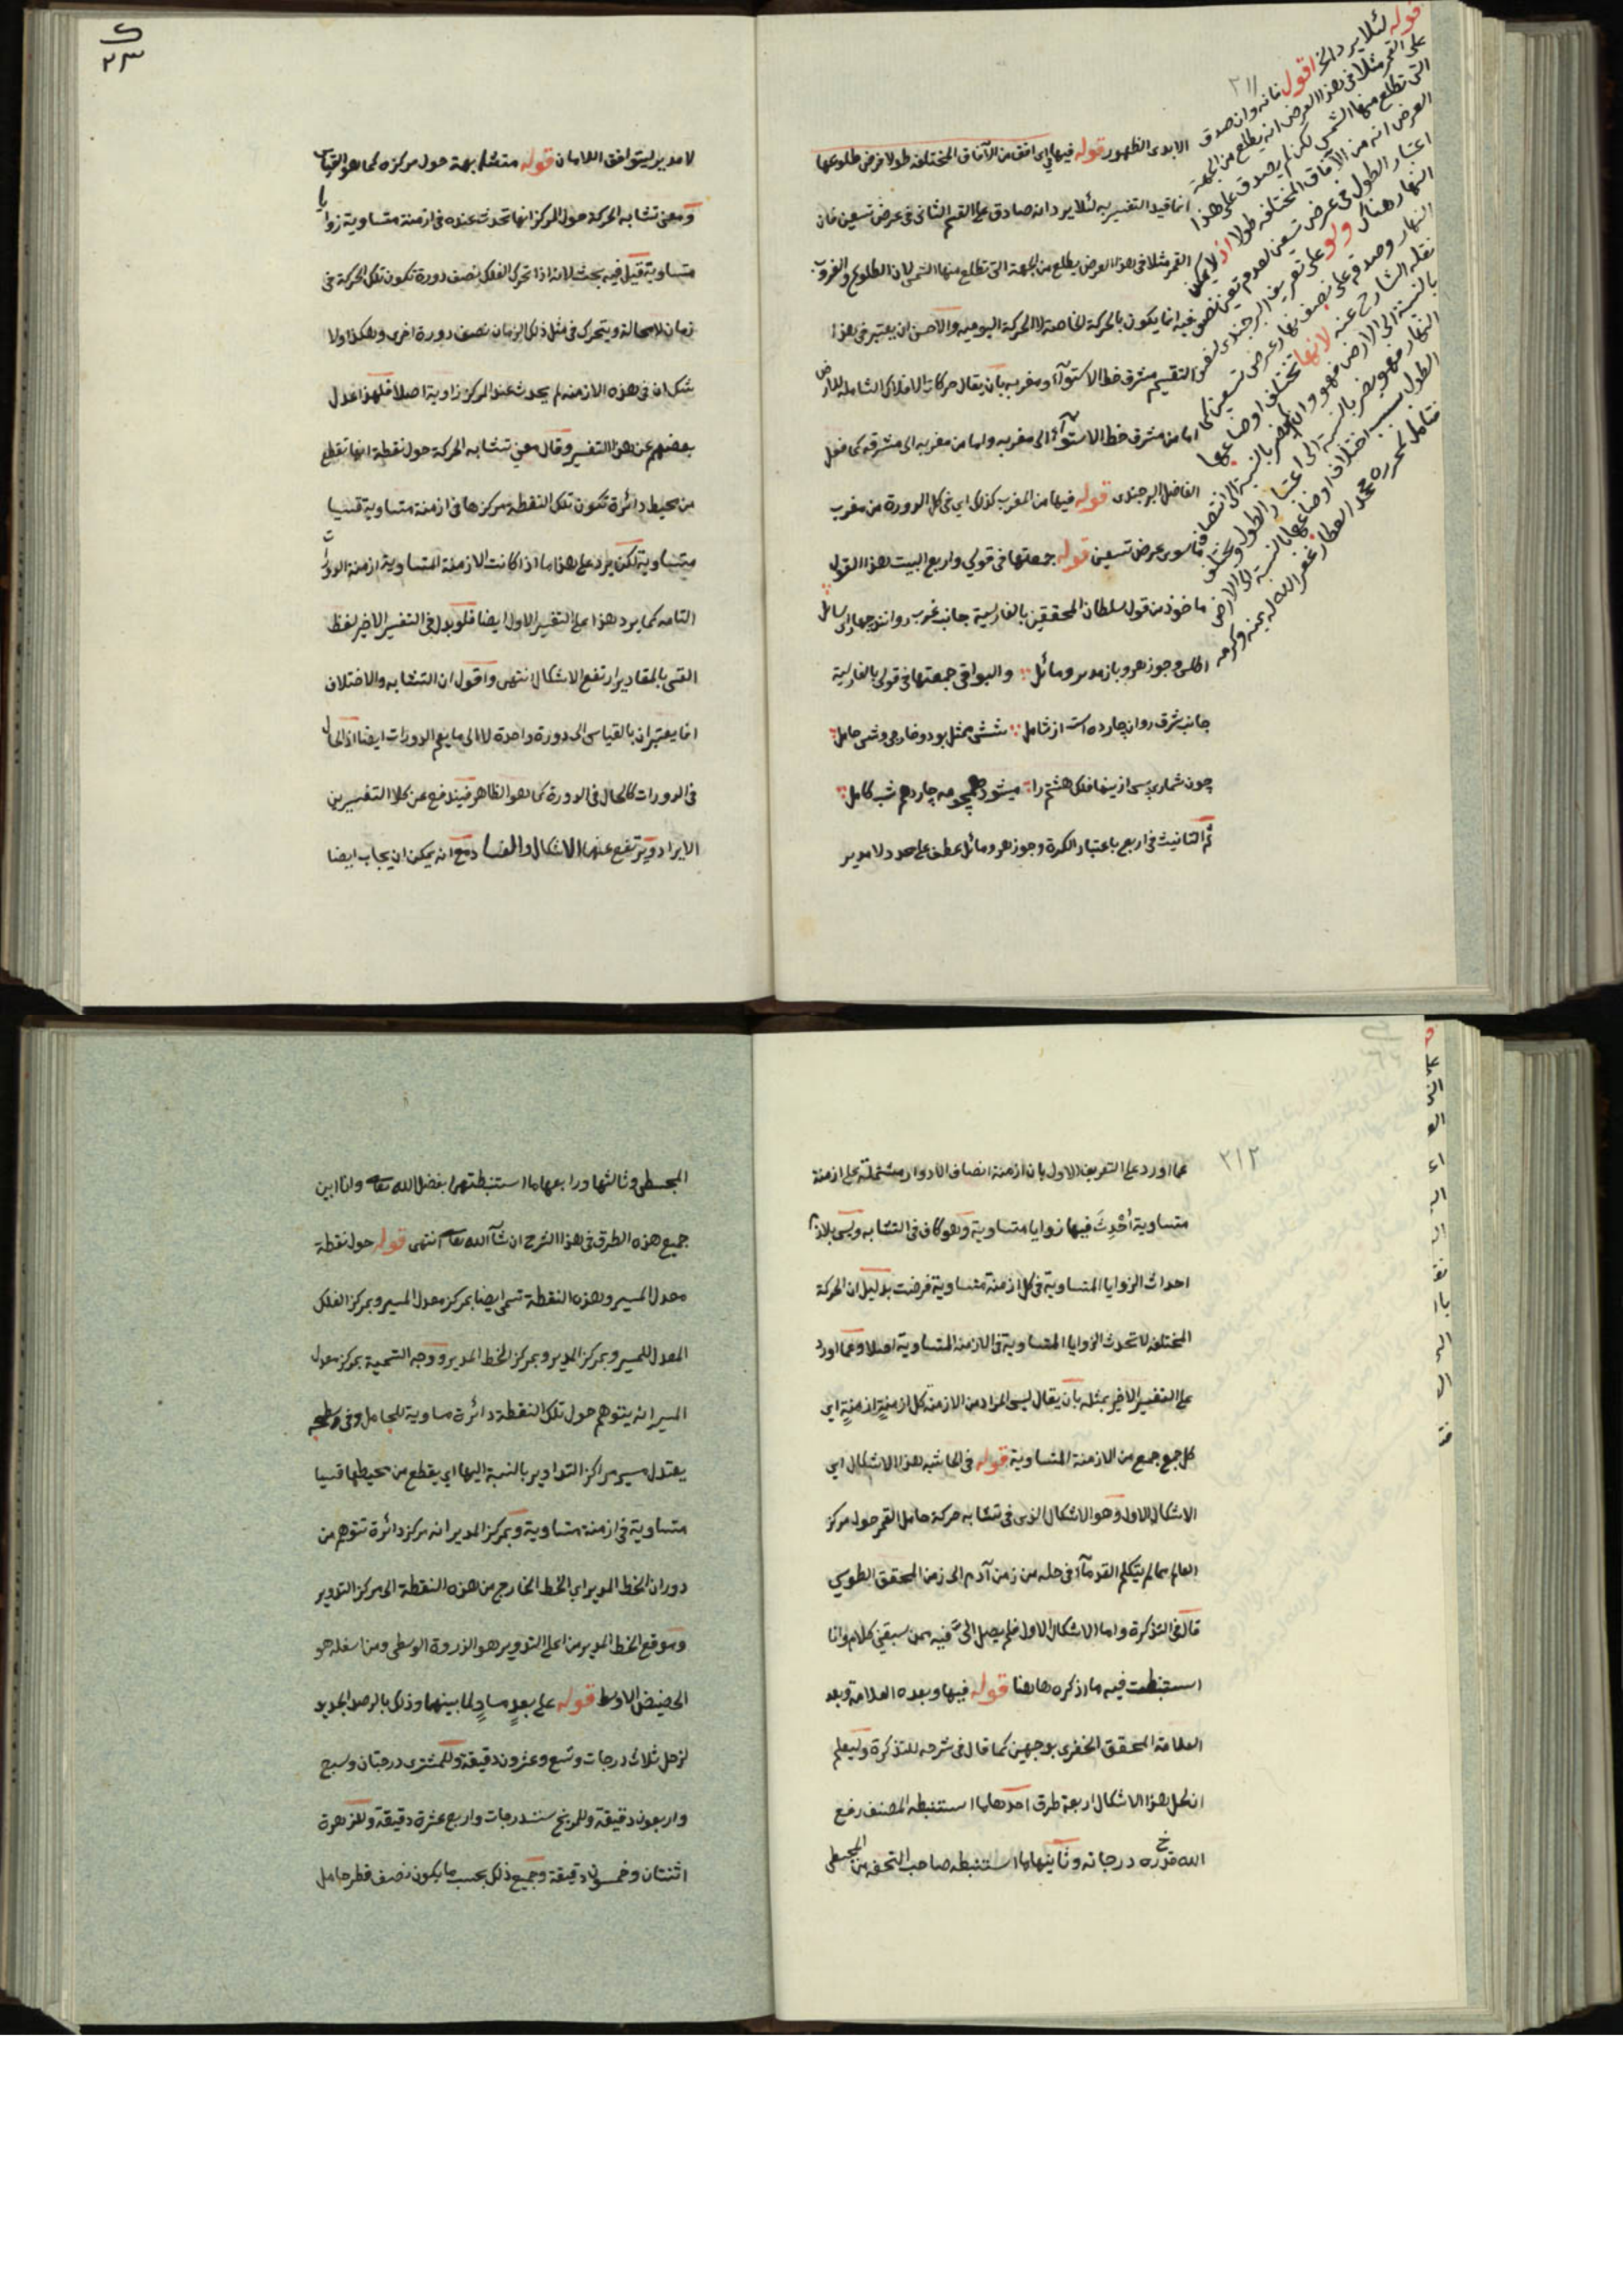 ٢١١
الابدى الظهور قوله فيها اى افق من الآفاق المختلفه طولا فرض طلوعها
انما قيد التفسير به لئلا يرد انه صادق على القسم الثانى فى عرض تسعين فان
القمر مثلا فى هذا العرض يطلع من الجهة التى تطلع منها الشمس لان الطلوع والغروب
فيه انما يكون بالحركة الخاصة لا الحركة اليومية والاحسن ان يعتبر فى هذا
التقسيم مشرق خط الاستوآء ومغربه بان يقال حركات الافلاك الشاملة للارض
اما من مشرق خط الاستوآء الى مغربه واما من مغربه الى مشرقه كما فعل
الفاضل البرجندى قوله فيها من المغرب كذلك اى فى كل الدورة من مغرب
ما سوى عرض تسعين قوله جمعتها فى قولي واربع البيت هذا القول
ماخوذ من قول سلطان المحققين بالفارسية جانب غرب روانند چهار اى سائل
اطلس وجوزهر وباز مدير ومائل والبواقى جمعتها فى قولى بالفارسية
جانب شرق روان چارده است از شامل شش ممثل بود و خارجى و شش حامل
چون شمارى پس ازينها فلك هشتم را ميشود همچو مه چاردهم شب كامل
ثم التانيث فى اربع باعتبار الكرة وجوزهر ومائل عطف على حد ولا مدير
قوله لئلا يرد الخ اقول فانه وان صدق
على القمر مثلا فى هذا العرض انه يطلع من الجهة
التى تطلع منها الشمس لكن لم يصدق على هذا
العرض انه من الآفاق المختلفه طولا اذ لا يمكن
اعتبار الطول فى عرض تسعين لعدم تعين نصف
النهار هناك ولو على تعريف البرجندى لنصف
النهار وصدقه على نصف نهار عرض تسعين كما
نقله الشارح عنه لانها تختلف اوضاعها
بالنسبة الى الارض فهو وان
النهار فهو يضر بالنسبة الى اعتبار الطول
الطول سبب اختلاف اوضاعها بالنسبة الى الارض
فتامل لمحرره محمد العطار غفر الله له بمنه وكرمه
٢٣
لا مدير ليتوافق اللامان قوله متشابهة حول مركزه كما هو القياس
ومعنى تشابه الحركة حول المركز انها تحدث عنده فى ازمنة متساوية زوايا
متساوية قيل فيه بحث لانه اذا تحرك الفلك نصف دورة تكون تلك الحركة فى
زمان لا محالة ويتحرك فى مثل ذلك الزمان نصف دورة اخرى وهكذا ولا
شك ان فى هذه الازمنه لم يحدث عند المركز زاوية اصلا فلهذا عدل
بعضهم عن هذا التفسير وقال معنى تشابه الحركة حول نقطة انها تقطع
من محيط دائرة تكون تلك النقطة مركزها فى ازمنة متساوية قسيا
متساوية لكن يرد على هذا ما اذا كانت الازمنة المتساوية ازمنة الدورات
التامه كما يرد هذا على التفسير الاول ايضا فلو بدل فى التفسير الاخير لفظ
القسى بالمقادير ارتفع الاشكال انتهى واقول ان التشابه والاختلاف
انما يعتبران بالقياس الى دورة واحدة لا الى ما يعم الدورات ايضا اذ الحال
فى الدورات كالحال فى الدورة كما هو الظاهر فيندفع عن كلا التفسيرين
الايراد ويرتفع عنهما الاشكال والفساد مع انه يمكن ان يجاب ايضا
٢١٢
عما اورد على التعريف الاول بان ازمنة انصاف الادوار مشتملة على ازمنة
متساوية أُحْدِثَ فيها زوايا متساوية وهو كاف فى التشابه وليس بلازم
احداث الزوايا المتساوية فى كل ازمنة متساوية فرضت بدليل ان الحركة
المختلفه لا تحدث الزوايا المتساوية فى الازمنه المتساوية اصلا وعما اورد
على التفسير الاخير بمثله بان يقال ليس المراد من الازمنة كل ازمنة ازمنة اى
كل جمع جمع من الازمنة المتساوية قوله فى الحاشيه هذا الاشكال اى
الاشكال الاول وهو الاشكال الذى فى تشابه حركة حامل القمر حول مركز
العالم مما لم يتكلم القدمآء فى حله من زمن آدم الى زمن المحقق الطوسي
قال فى التذكرة واما الاشكال الاول فلم يصل الىّ فيه ممن سبقنى كلام وانا
استنبطت فيه ما اذكره هاهنا قوله فيها وبعده العلامة وبعد
العلامة المحقق الخفرى بوجهين كما قال فى شرحه للتذكرة وليعلم
ان لحل هذا الاشكال اربعة طرق احدها ما استنبطه المصنف رفع
الله قدره درجاته وثانيها ما استنبطه صاحب التحفه من المجسطى
المجسطى وثالثها ورابعها ما استنبطتهما بفضل الله تعالى وانا ابين
جميع هذه الطرق فى هذا الشرح ان شآء الله تعالى انتهى قوله حول نقطة
معدل المسير وهذه النقطة تسمى ايضا بمركز معدل المسير وبمركز الفلك
المعدل للمسير وبمركز المدير وبمركز الخط المدير ووجه التسمية بمركز معدل
المسير انه يتوهم حول تلك النقطة دائرة مساوية للحامل وفى سطحه
يعتدل مسير مراكز التداوير بالنسبة اليها اى يقطع من محيطها قسيا
متساوية فى ازمنة متساوية وبمركز المدير انه مركز دائرة تتوهم من
دوران الخط المدير اى الخط الخارج من هذه النقطة الى مركز التدوير
وموقع الخط المدير من اعلى التدوير هو الذروة الوسطى ومن اسفله هو
الحضيض الاوسط قوله على بعدٍ مساوٍ لما بينهما وذلك بالرصد الجديد
لزحل ثلاث درجات وتسع وعشرون دقيقة وللمشترى درجتان وسبع
واربعون دقيقة وللمريخ ست درجات واربع عشرة دقيقة وللزهرة
اثنتان وخمسون دقيقة وجميع ذلك بحسب ما يكون نصف قطر حامل